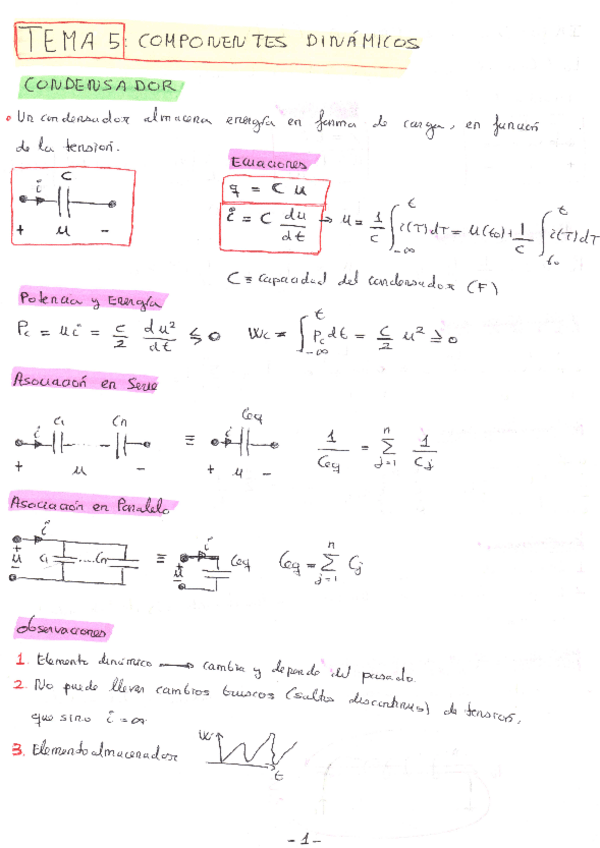 TEMA 5: COMPONENTES DINÁMICOS
CONDENSADOR
• Un condensador almacena energía en forma de carga, en función
de la tensión.
C
i
+ u -
Ecuaciones
q = C u
i = C du/dt → u = 1/C ∫_{-∞}^{t} i(τ)dτ = u(t₀) + 1/C ∫_{t₀}^{t} i(τ)dτ
C ≡ capacidad del condensador (F)
Potencia y Energía
Pc = u i = C/2 du²/dt ≶ 0 Wc = ∫_{-∞}^{t} Pc dt = C/2 u² ≥ 0
Asociación en Serie
C₁ Cn
i ..... ≡ i Ceq
+ u - + u -
1/Ceq = Σ_{j=1}^{n} 1/Cj
Asociación en Paralelo
i
+ u - C₁ ..... Cn ≡ i + u - Ceq
Ceq = Σ_{j=1}^{n} Cj
Observaciones
1. Elemento dinámico → cambia y depende del pasado.
2. No puede llevar cambios bruscos (saltos discontinuos) de tensión,
que sino i = ∞
3. Elemento almacenador
w
t
- 1 -